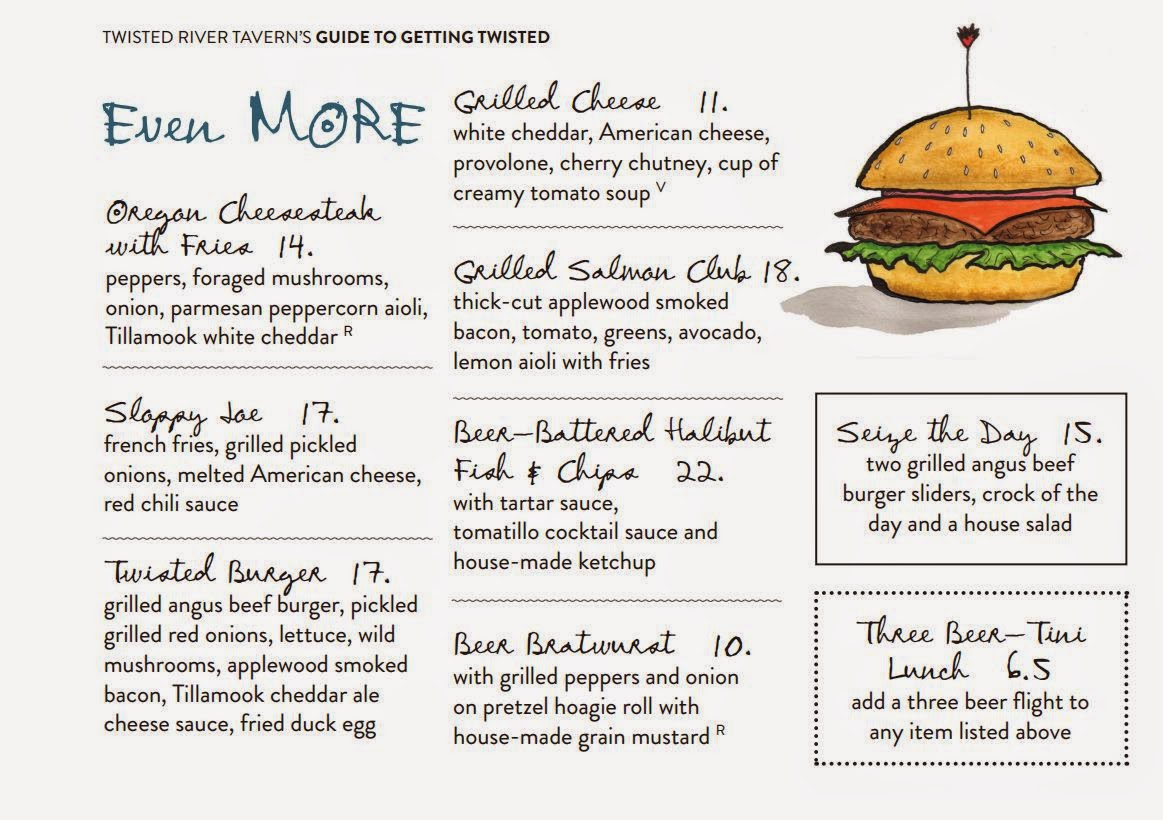 TWISTED RIVER TAVERN'S GUIDE TO GETTING TWISTED
Even MORE
Oregon Cheesesteak
with Fries 14.
peppers, foraged mushrooms,
onion, parmesan peppercorn aioli,
Tillamook white cheddar R
Sloppy Joe 17.
french fries, grilled pickled
onions, melted American cheese,
red chili sauce
Twisted Burger 17.
grilled angus beef burger, pickled
grilled red onions, lettuce, wild
mushrooms, applewood smoked
bacon, Tillamook cheddar ale
cheese sauce, fried duck egg
Grilled Cheese 11.
white cheddar, American cheese,
provolone, cherry chutney, cup of
creamy tomato soup V
Grilled Salmon Club 18.
thick-cut applewood smoked
bacon, tomato, greens, avocado,
lemon aioli with fries
Beer-Battered Halibut
Fish & Chips 22.
with tartar sauce,
tomatillo cocktail sauce and
house-made ketchup
Beer Bratwurst 10.
with grilled peppers and onion
on pretzel hoagie roll with
house-made grain mustard R
Seize the Day 15.
two grilled angus beef
burger sliders, crock of the
day and a house salad
Three Beer-Tini
Lunch 6.5
add a three beer flight to
any item listed above